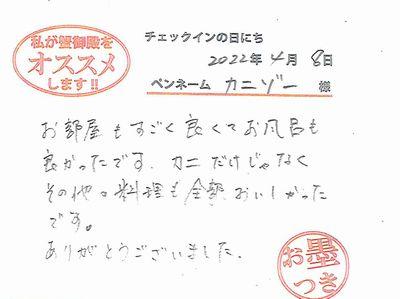 私が蟹御殿を
オススメ
します!!
チェックインの日にち
2022年4月8日
ペンネーム カニゾー 様
お部屋もすごく良くてお風呂も
良かったです。カニだけじゃなく
その他の料理も全部おいしかった
です。
ありがとうございました。
お墨
つき